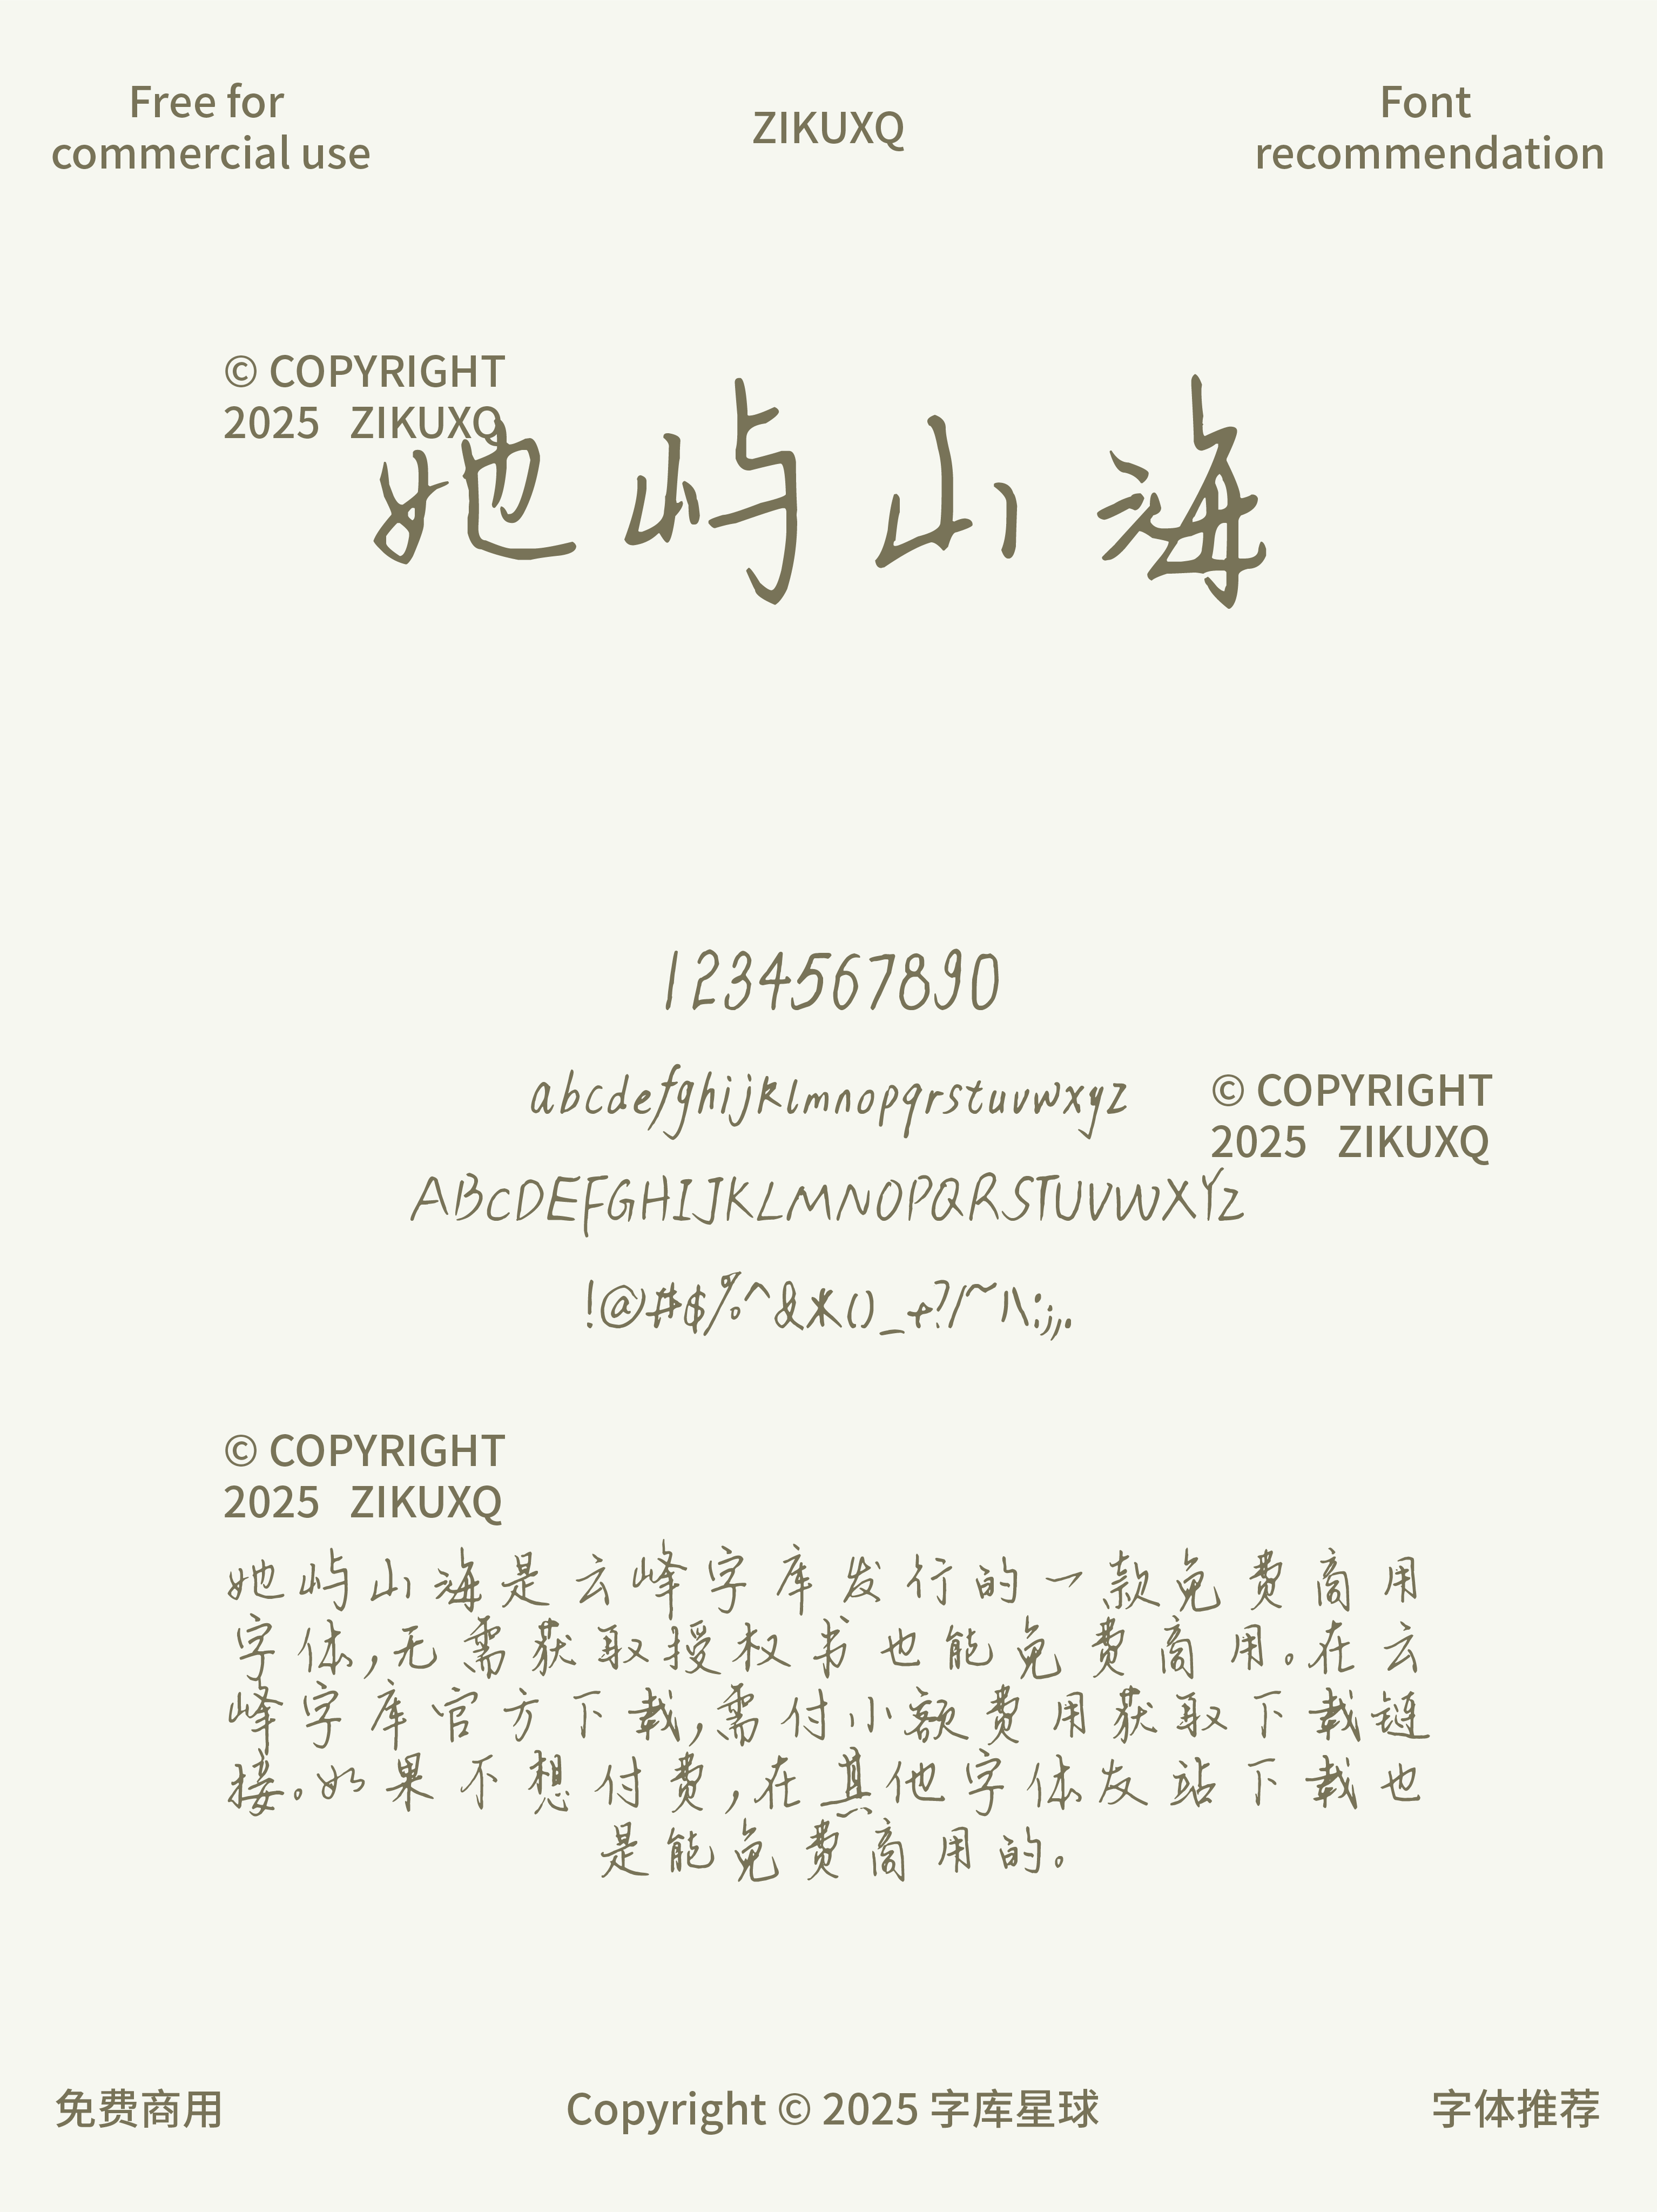 Free for
commercial use
ZIKUXQ
Font
recommendation
© COPYRIGHT
2025 ZIKUXQ
她屿山海
1234567890
abcdefghijklmnopqrstuvwxyz
© COPYRIGHT
2025 ZIKUXQ
ABCDEFGHIJKLMNOPQRSTUVWXYZ
!@#$%^&*()_+?/~|\:;,.
© COPYRIGHT
2025 ZIKUXQ
她屿山海是云峰字库发行的一款免费商用
字体,无需获取授权书也能免费商用。在云
峰字库官方下载,需付小额费用获取下载链
接。如果不想付费,在其他字体友站下载也
是能免费商用的。
免费商用
Copyright © 2025 字库星球
字体推荐